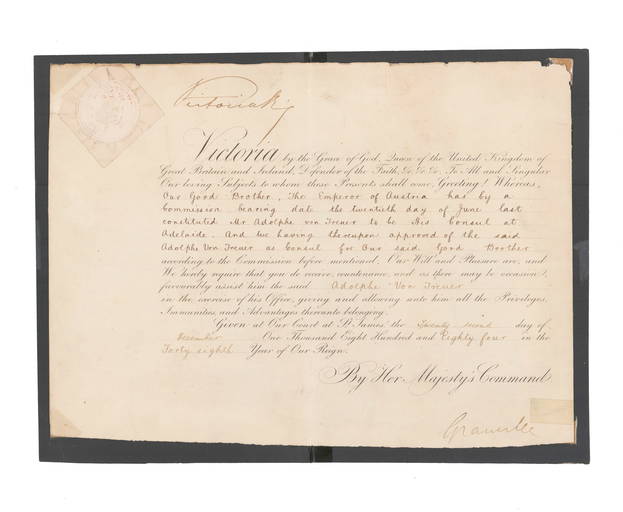 Victoria R
Victoria by the Grace of God, Queen of the United Kingdom of
Great Britain and Ireland, Defender of the Faith, &c. &c. &c. To All and Singular
Our loving Subjects to whom these Presents shall come, Greeting! Whereas,
Our Good Brother, The Emperor of Austria has by a
Commission bearing date the twentieth day of June last
constituted Mr Adolphe von Treuer to be His Consul at
Adelaide. And we having thereupon approved of the said
Adolphe Von Treuer as Consul for Our said Good Brother
according to the Commission before mentioned, Our Will and Pleasure are, and
We hereby require that you do receive, countenance, and as there may be occasion,
favourably assist him the said Adolphe Von Treuer
in the exercise of his Office, giving and allowing unto him all the Privileges,
Immunities and Advantages thereunto belonging.
Given at Our Court at St James', the Twenty second day of
December One Thousand Eight Hundred and Eighty four in the
Forty eighth Year of Our Reign.
By Her Majesty's Command
Granville